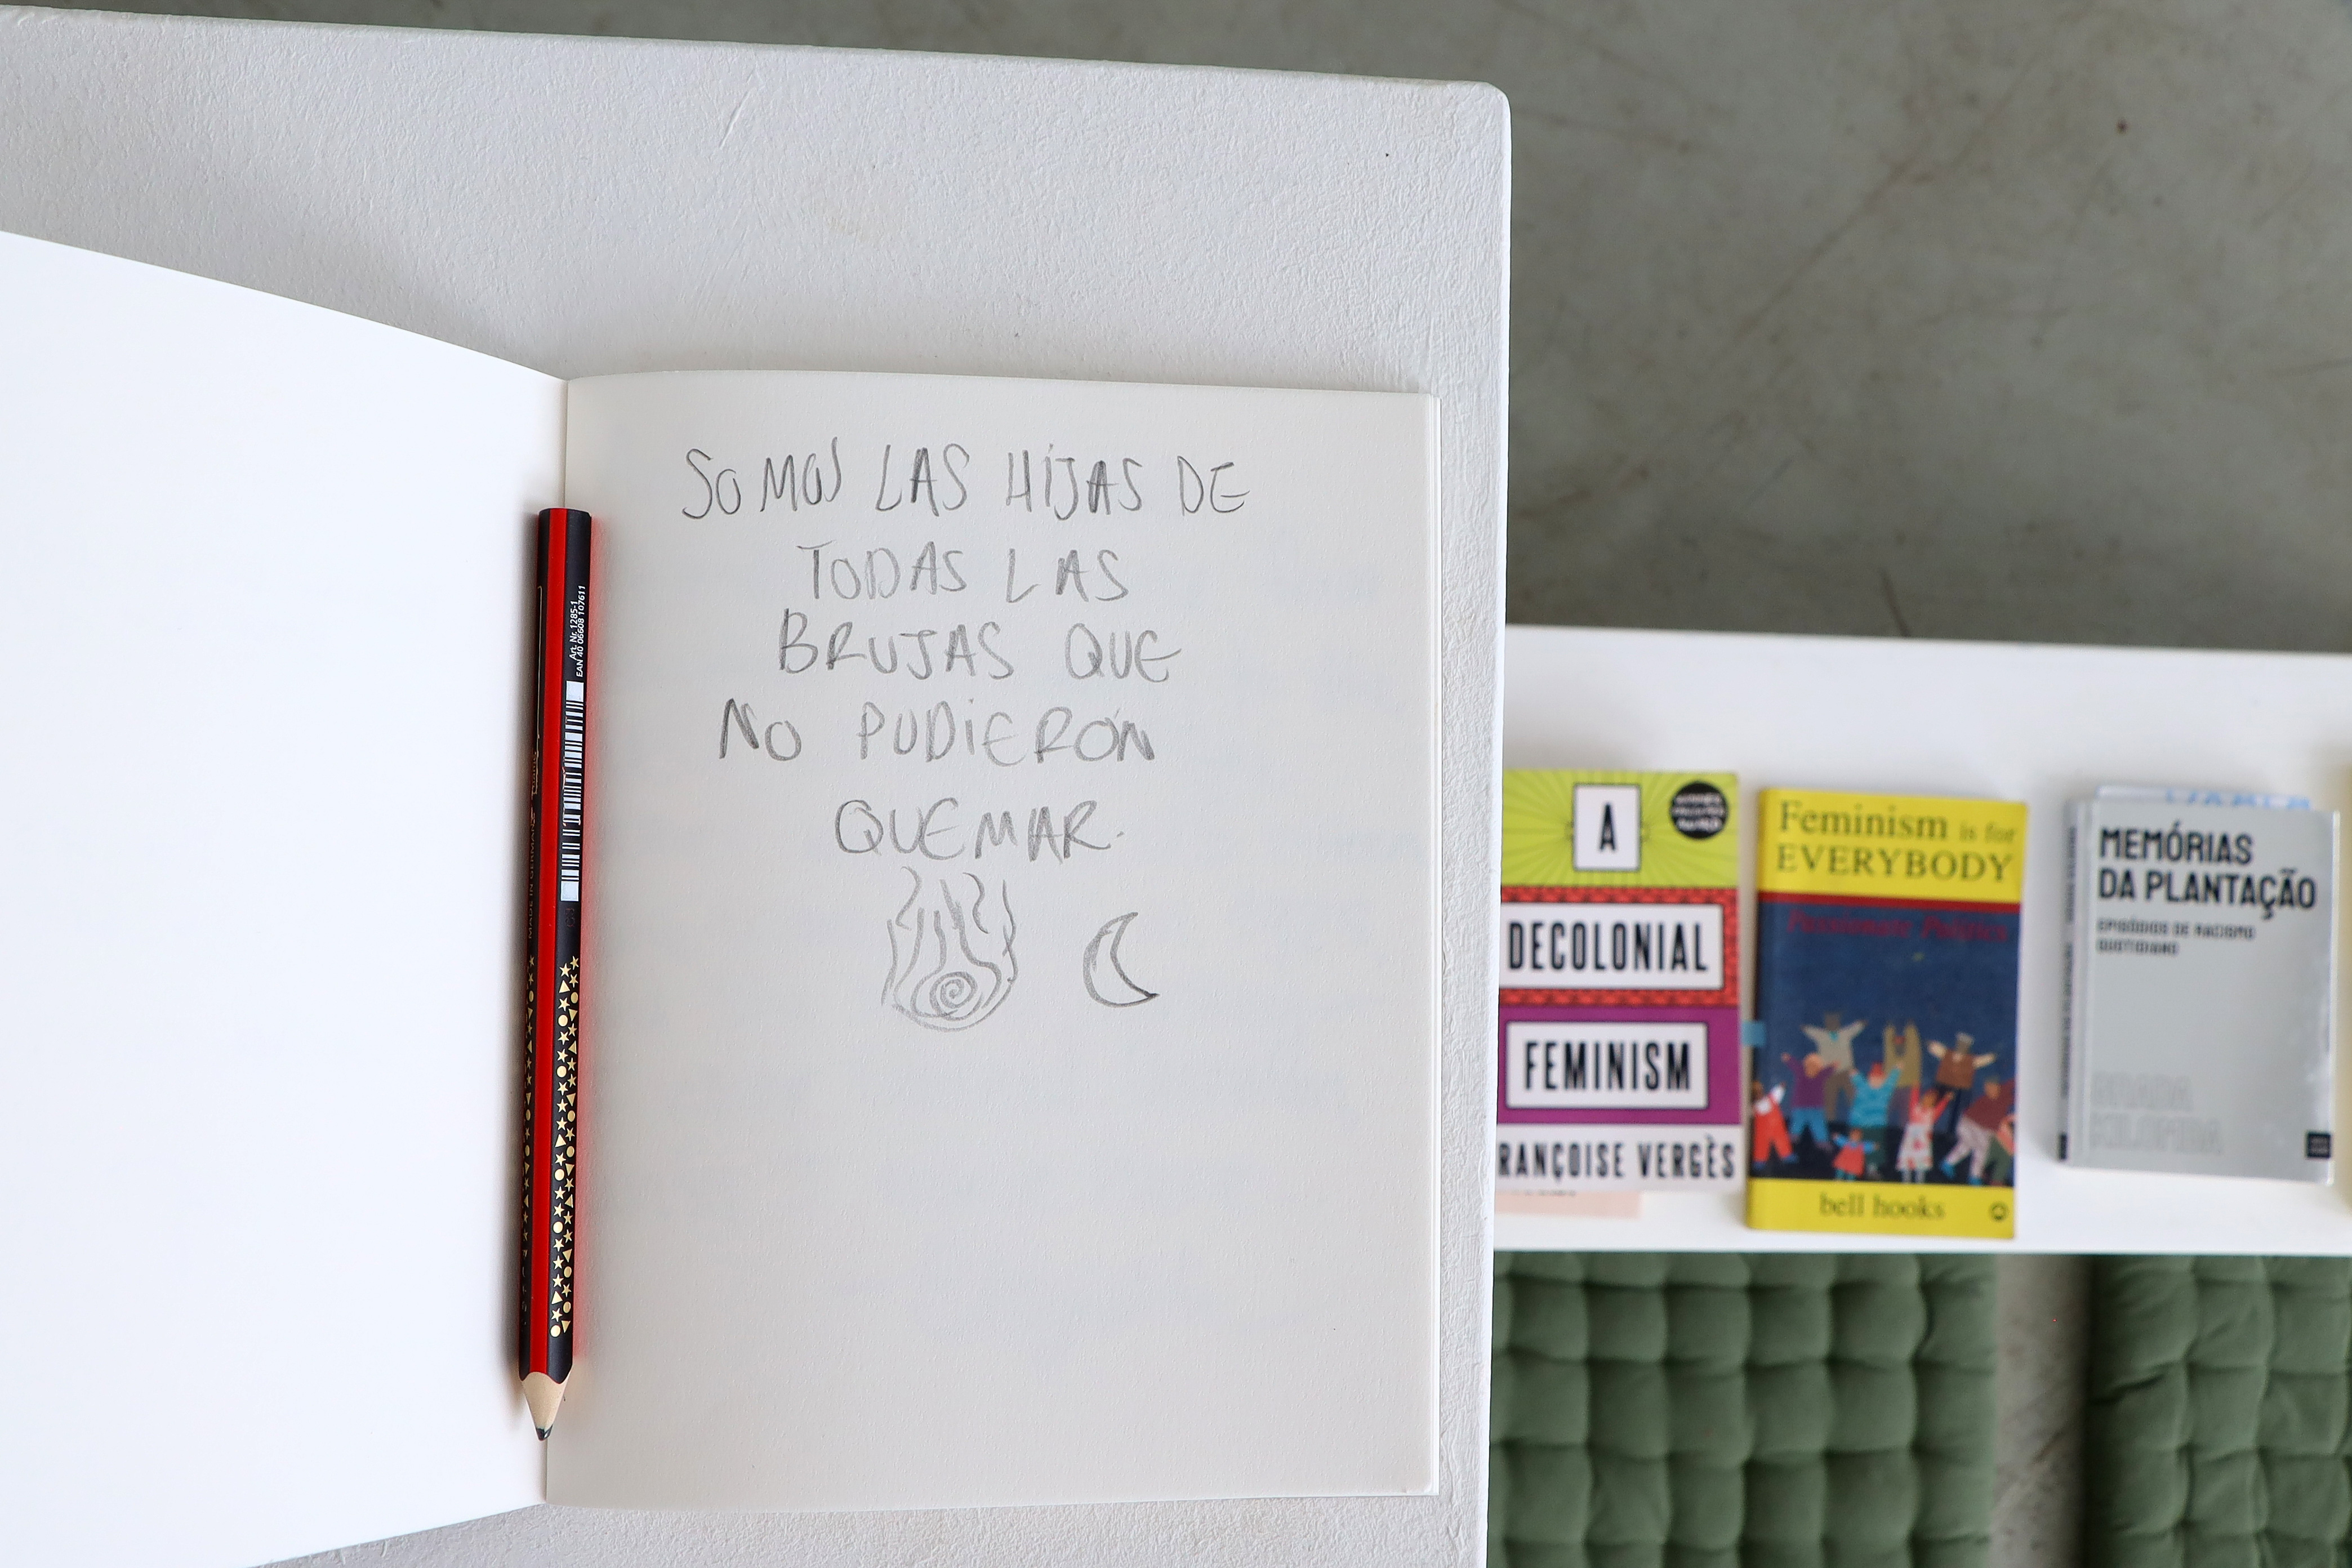 SOMOS LAS HIJAS DE
TODAS LAS
BRUJAS QUE
NO PUDIERON
QUEMAR.
Art. Nr. 1285-1
EAN 40 06608 107611
MADE IN GERMANY
A
DECOLONIAL
FEMINISM
RANÇOISE VERGÈS
Feminism is for
EVERYBODY
Passionate Politics
bell hooks
MEMÓRIAS
DA PLANTAÇÃO
EPISÓDIOS DE RACISMO
QUOTIDIANO
GRADA
KILOMBA